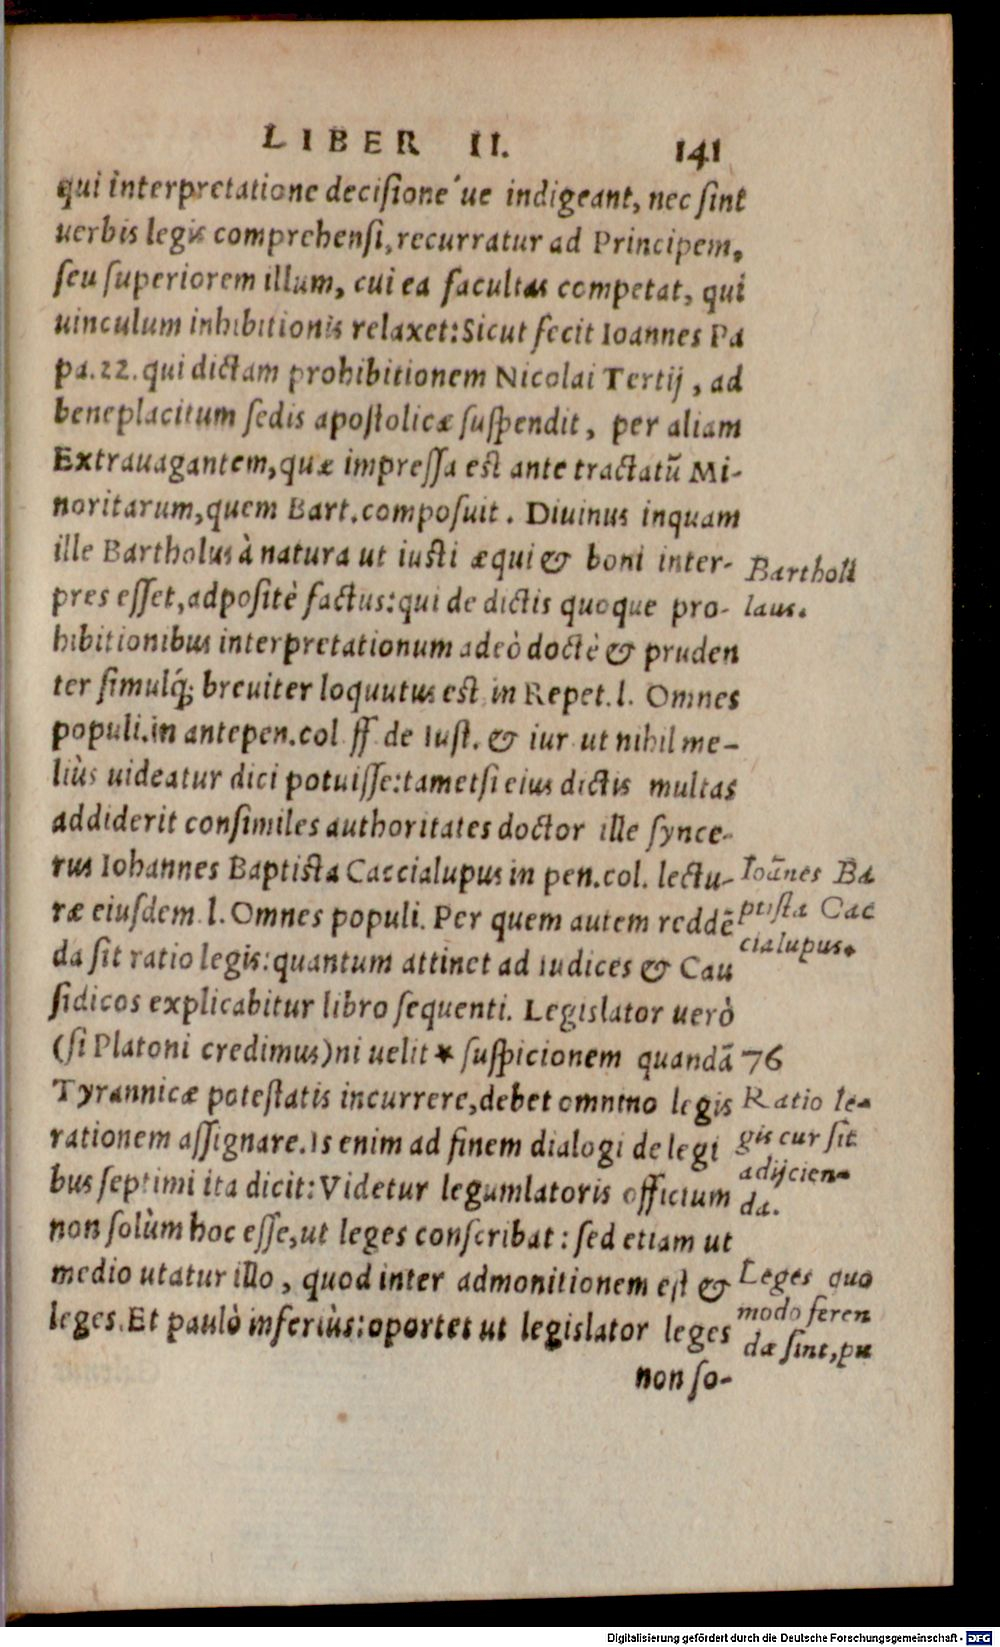 LIBER II. 141
qui interpretatione decisione've indigeant, nec sint
uerbis legis comprehensi, recurratur ad Principem,
seu superiorem illum, cui ea facultas competat, qui
uinculum inhibitionis relaxet: Sicut fecit Ioannes Pa
pa. 22. qui dictam prohibitionem Nicolai Tertij, ad
beneplacitum sedis apostolicæ suspendit, per aliam
Extrauagantem, quæ impressa est ante tractatũ Mi-
noritarum, quem Bart. composuit. Diuinus inquam
ille Bartholus à natura ut iusti æqui & boni inter-
pres esset, adpositè factus: qui de dictis quoque pro-
hibitionibus interpretationum adeò doctè & pruden
ter simulq́; breuiter loquutus est in Repet. l. Omnes
populi. in antepen. col ff de Iust. & iur ut nihil me-
liùs uideatur dici potuisse: tametsi eius dictis multas
addiderit consimiles authoritates doctor ille synce-
rus Iohannes Baptista Caccialupus in pen. col. lectu-
ræ eiusdem l. Omnes populi. Per quem autem reddẽ
da sit ratio legis: quantum attinet ad iudices & Cau
sidicos explicabitur libro sequenti. Legislator uerò
(si Platoni credimus) ni uelit * suspicionem quandã
Tyrannicæ potestatis incurrere, debet omnino legis
rationem assignare. Is enim ad finem dialogi de legi
bus septimi ita dicit: Videtur legumlatoris officium
non solùm hoc esse, ut leges conscribat: sed etiam ut
medio utatur illo, quod inter admonitionem est &
leges. Et paulò inferiùs: oportet ut legislator leges
non so-
Bartholi
laus.
Ioãnes Ba
ptista Cac
cialupus.
76
Ratio le-
gis cur sit
adijcien-
da.
Leges quo
modo feren
dæ sint, pu
Digitalisierung gefördert durch die Deutsche Forschungsgemeinschaft - DFG